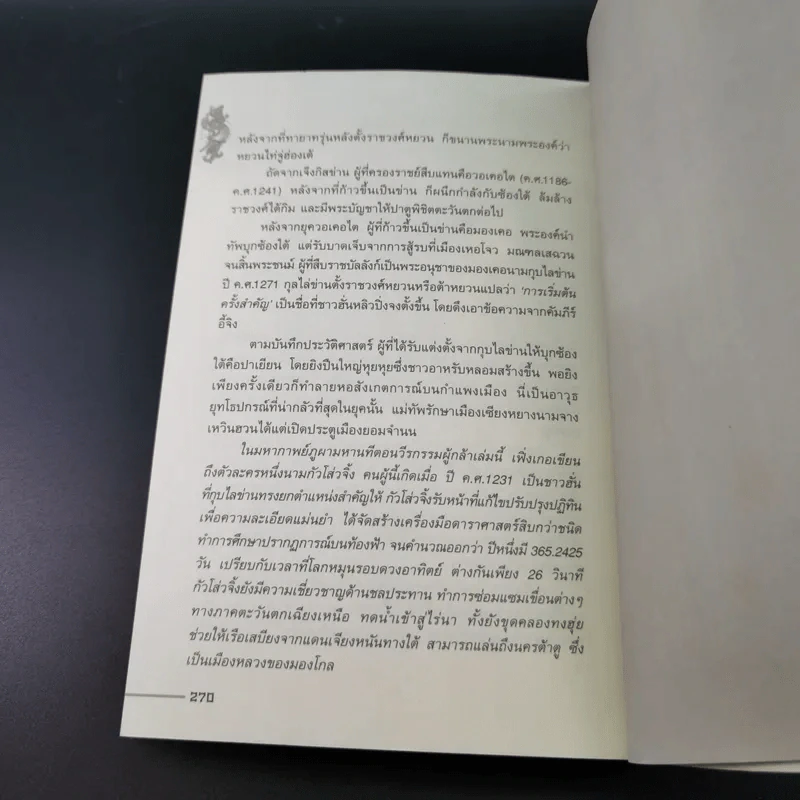 หลังจากที่ทายาทรุ่นหลังตั้งราชวงศ์หยวน ก็ขนานพระนามพระองค์ว่า
หยวนไท่จู่ฮ่องเต้
ถัดจากเจ็งกิสข่าน ผู้ที่ครองราชย์สืบแทนคือวอเคอไต (ค.ศ.1186-
ค.ศ.1241) หลังจากที่ก้าวขึ้นเป็นข่าน ก็ผนึกกำลังกับซ้องใต้ ล้มล้าง
ราชวงศ์ไต้กิม และมีพระบัญชาให้ปาตูพิชิตตะวันตกต่อไป
หลังจากยุควอเคอไต ผู้ที่ก้าวขึ้นเป็นข่านคือมองเคอ พระองค์นำ
ทัพบุกซ้องใต้ แต่รับบาดเจ็บจากการสู้รบที่เมืองเหอโจว มณฑลเสฉวน
จนสิ้นพระชนม์ ผู้ที่สืบราชบัลลังก์เป็นพระอนุชาของมองเคอนามกุบไลข่าน
ปี ค.ศ.1271 กุลไล่ข่านตั้งราชวงศ์หยวนหรือต้าหยวนแปลว่า 'การเริ่มต้น
ครั้งสำคัญ' เป็นชื่อที่ชาวฮั่นหลิวปิ่งจงตั้งขึ้น โดยดึงเอาข้อความจากคัมภีร์
อี้จิง
ตามบันทึกประวัติศาสตร์ ผู้ที่ได้รับแต่งตั้งจากกุบไลข่านให้บุกซ้อง
ใต้คือปาเยียน โดยยิงปืนใหญ่หุยหุยซึ่งชาวอาหรับหลอมสร้างขึ้น พอยิง
เพียงครั้งเดียวก็ทำลายหอสังเกตการณ์บนกำแพงเมือง นี่เป็นอาวุธ
ยุทโธปกรณ์ที่น่ากลัวที่สุดในยุคนั้น แม่ทัพรักษาเมืองเซียงหยางนามจาง
เหวินฮวนได้แต่เปิดประตูเมืองยอมจำนน
ในมหากาพย์ภูผามหานทีตอนวีรกรรมผู้กล้าเล่มนี้ เฟิ่งเกอเขียน
ถึงตัวละครหนึ่งนามกัวโส่วจิ้ง คนผู้นี้เกิดเมื่อ ปี ค.ศ.1231 เป็นชาวฮั่น
ที่กุบไลข่านทรงยกตำแหน่งสำคัญให้ กัวโส่วจิ้งรับหน้าที่แก้ไขปรับปรุงปฏิทิน
เพื่อความละเอียดแม่นยำ ได้จัดสร้างเครื่องมือดาราศาสตร์สิบกว่าชนิด
ทำการศึกษาปรากฏการณ์บนท้องฟ้า จนคำนวณออกว่า ปีหนึ่งมี 365.2425
วัน เปรียบกับเวลาที่โลกหมุนรอบดวงอาทิตย์ ต่างกันเพียง 26 วินาที
กัวโส่วจิ้งยังมีความเชี่ยวชาญด้านชลประทาน ทำการซ่อมแซมเขื่อนต่างๆ
ทางภาคตะวันตกเฉียงเหนือ ทดน้ำเข้าสู่ไร่นา ทั้งยังขุดคลองทงฮุ่ย
ช่วยให้เรือเสบียงจากแดนเจียงหนันทางใต้ สามารถแล่นถึงนครต้าตู ซึ่ง
เป็นเมืองหลวงของมองโกล
270